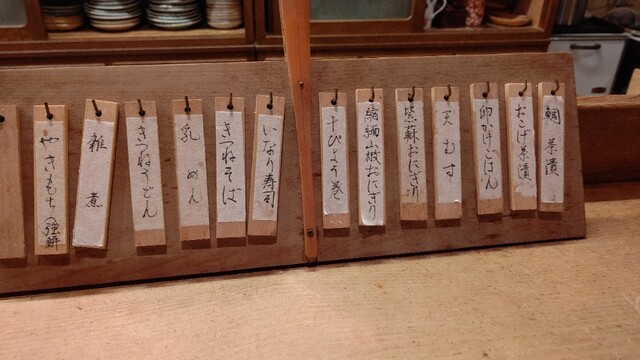 鯛茶漬
おこげ茶漬
卵かけごはん
天むす
紫蘇おにぎり
縮緬山椒おにぎり
干ぴょう巻
いなり寿司
きつねそば
乳めん
きつねうどん
雑煮
やきもち